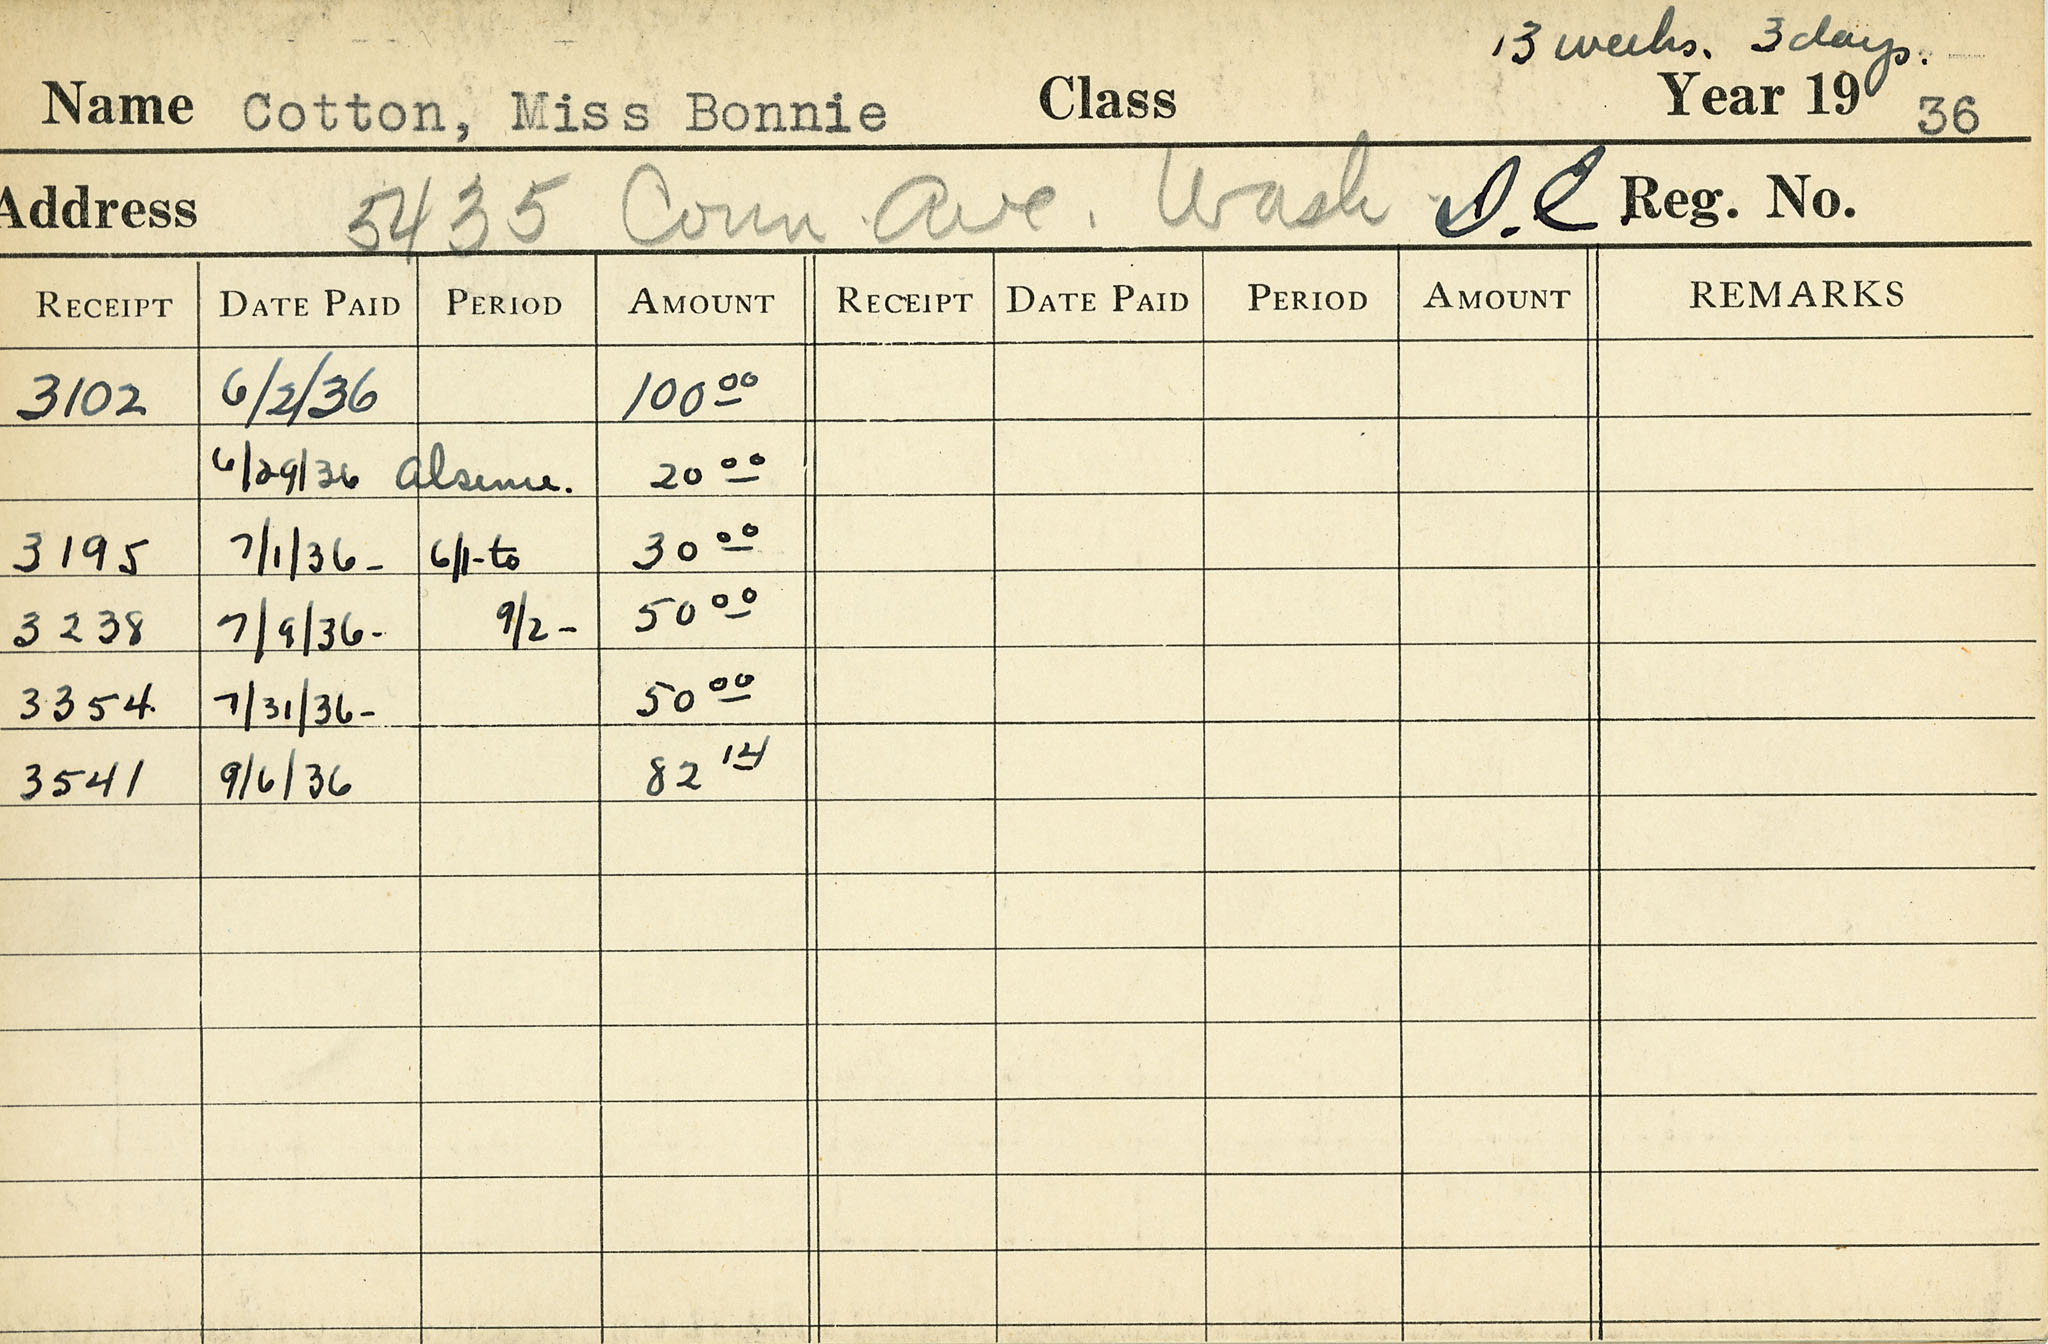 13 weeks. 3 days.
Name Cotton, Miss Bonnie Class Year 19 36
Address 5435 Conn. Ave. Wash. D.C. Reg. No.
RECEIPT DATE PAID PERIOD AMOUNT RECEIPT DATE PAID PERIOD AMOUNT REMARKS
3102 6/2/36 100 00
6/29/36 Absence. 20 00
3195 7/1/36- 6/1-to 30 00
3238 7/9/36- 9/2- 50 00
3354 7/31/36- 50 00
3541 9/6/36 82 14